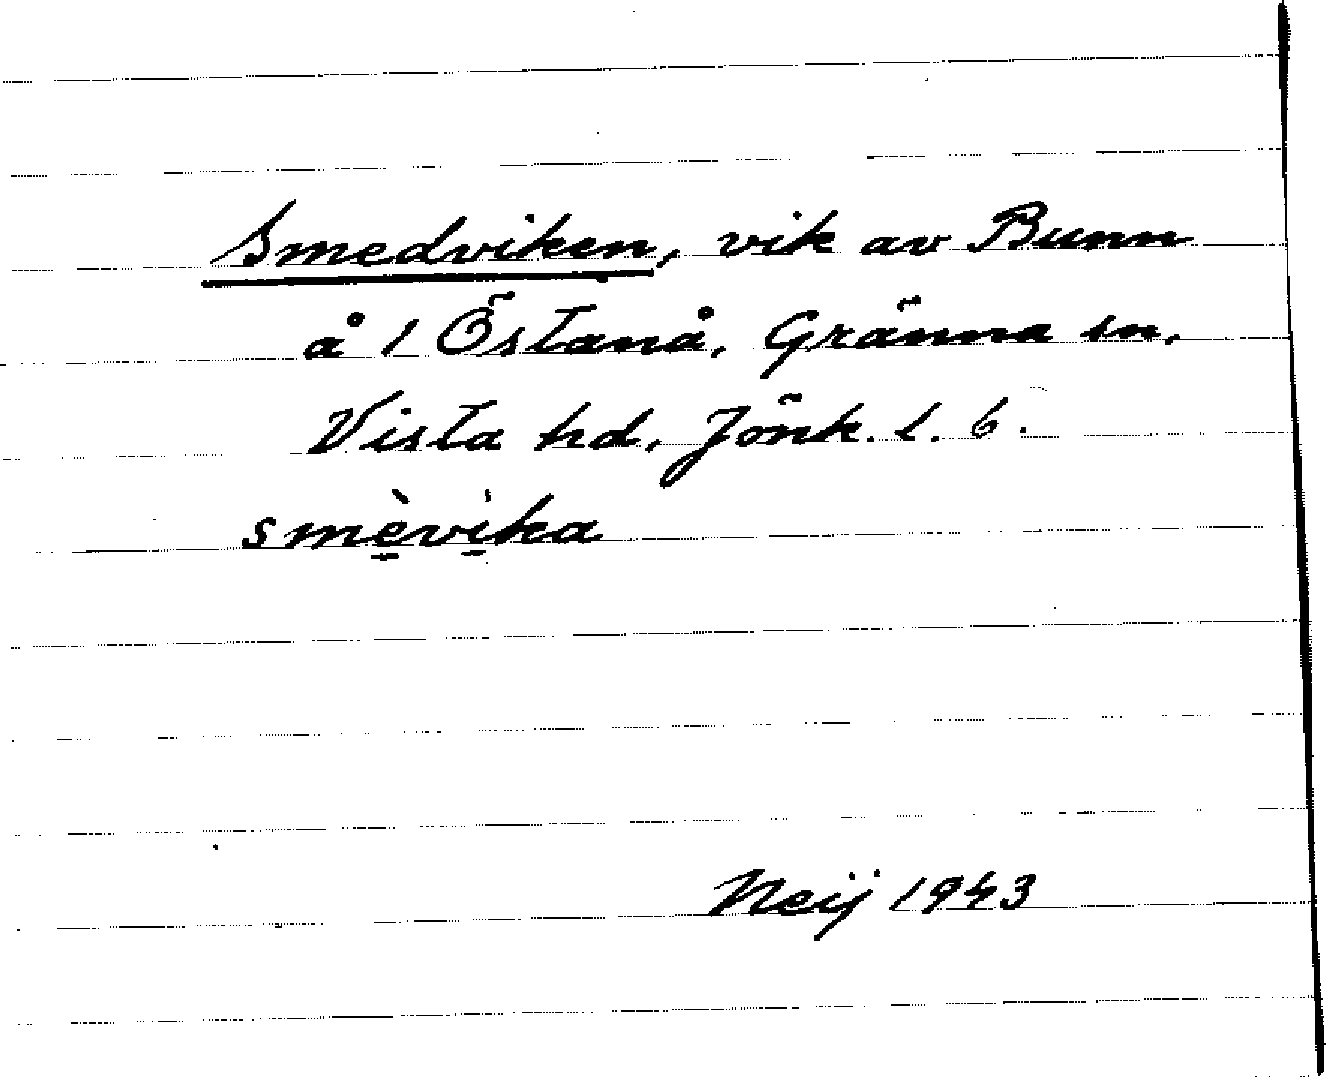 Smedviken, vik av Bunn
å 1 Östanå, Gränna sn,
Vista hd, Jönk. l. 6.
smè̱vi̱ka
Neij 1943